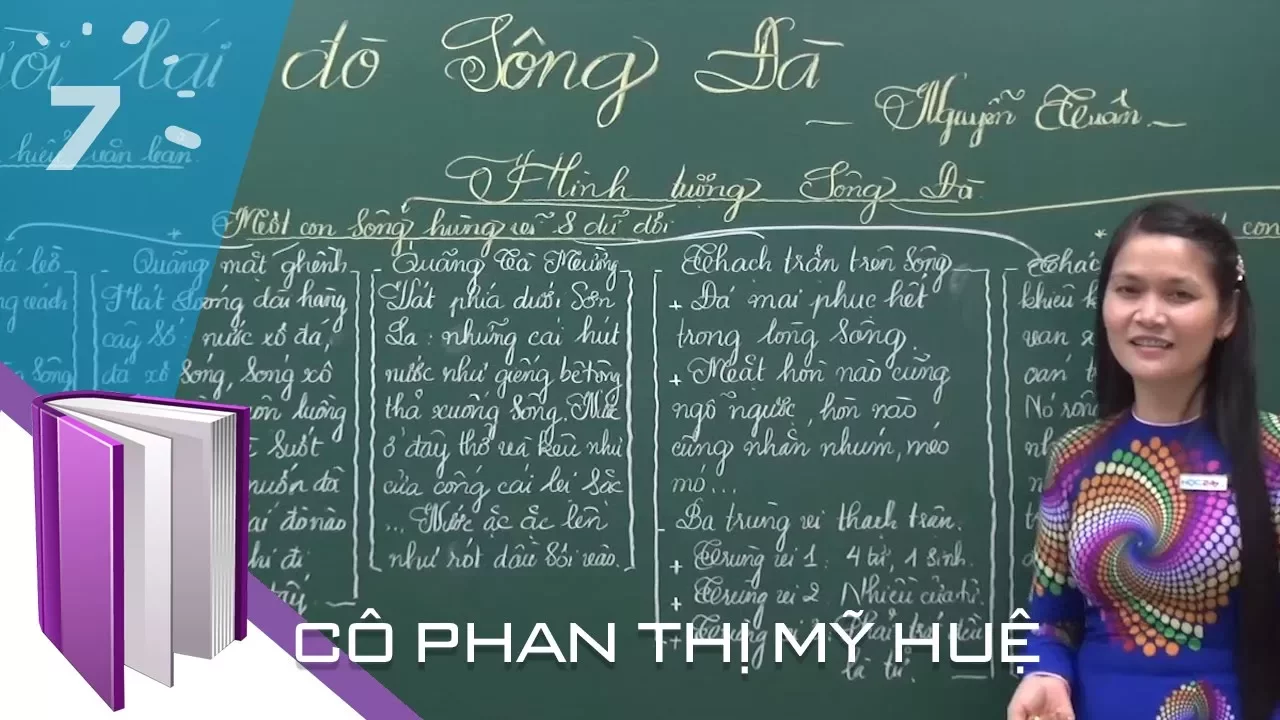 7
ười lái đò Sông Đà
Nguyễn Tuân
hiểu văn bản
Hình tượng Sông Đà
+ Một con sông hùng vĩ & dữ dội
đá bờ
vách
Sông
- Quãng mặt ghềnh
Hát Loóng dài hàng
cây số: nước xô đá,
đá xô sóng, sóng xô
luồng
suốt
đò nào
- Quãng Tà Mường
Vát phía dưới Sơn
La: những cái hút
nước như giếng bê tông
thả xuống sông. Nước
ở đây thở và kêu như
cửa cống cái bị sặc
... Nước ặc ặc lên
như rót dầu sôi vào.
- Thạch trận trên sông
+ Đá mai phục hết
trong lòng sông.
+ Mặt hòn nào cũng
ngỗ ngược, hòn nào
cũng nhăn nhúm, méo
mó...
- Ba trùng vi thạch trận.
+ Trùng vi 1: 4 tử, 1 sinh.
+ Trùng vi 2: Nhiều cửa tử.
là tử.
- Thác
khiêu
van
oán
Nó rống
con
HỌC247
CÔ PHAN THỊ MỸ HUỆ